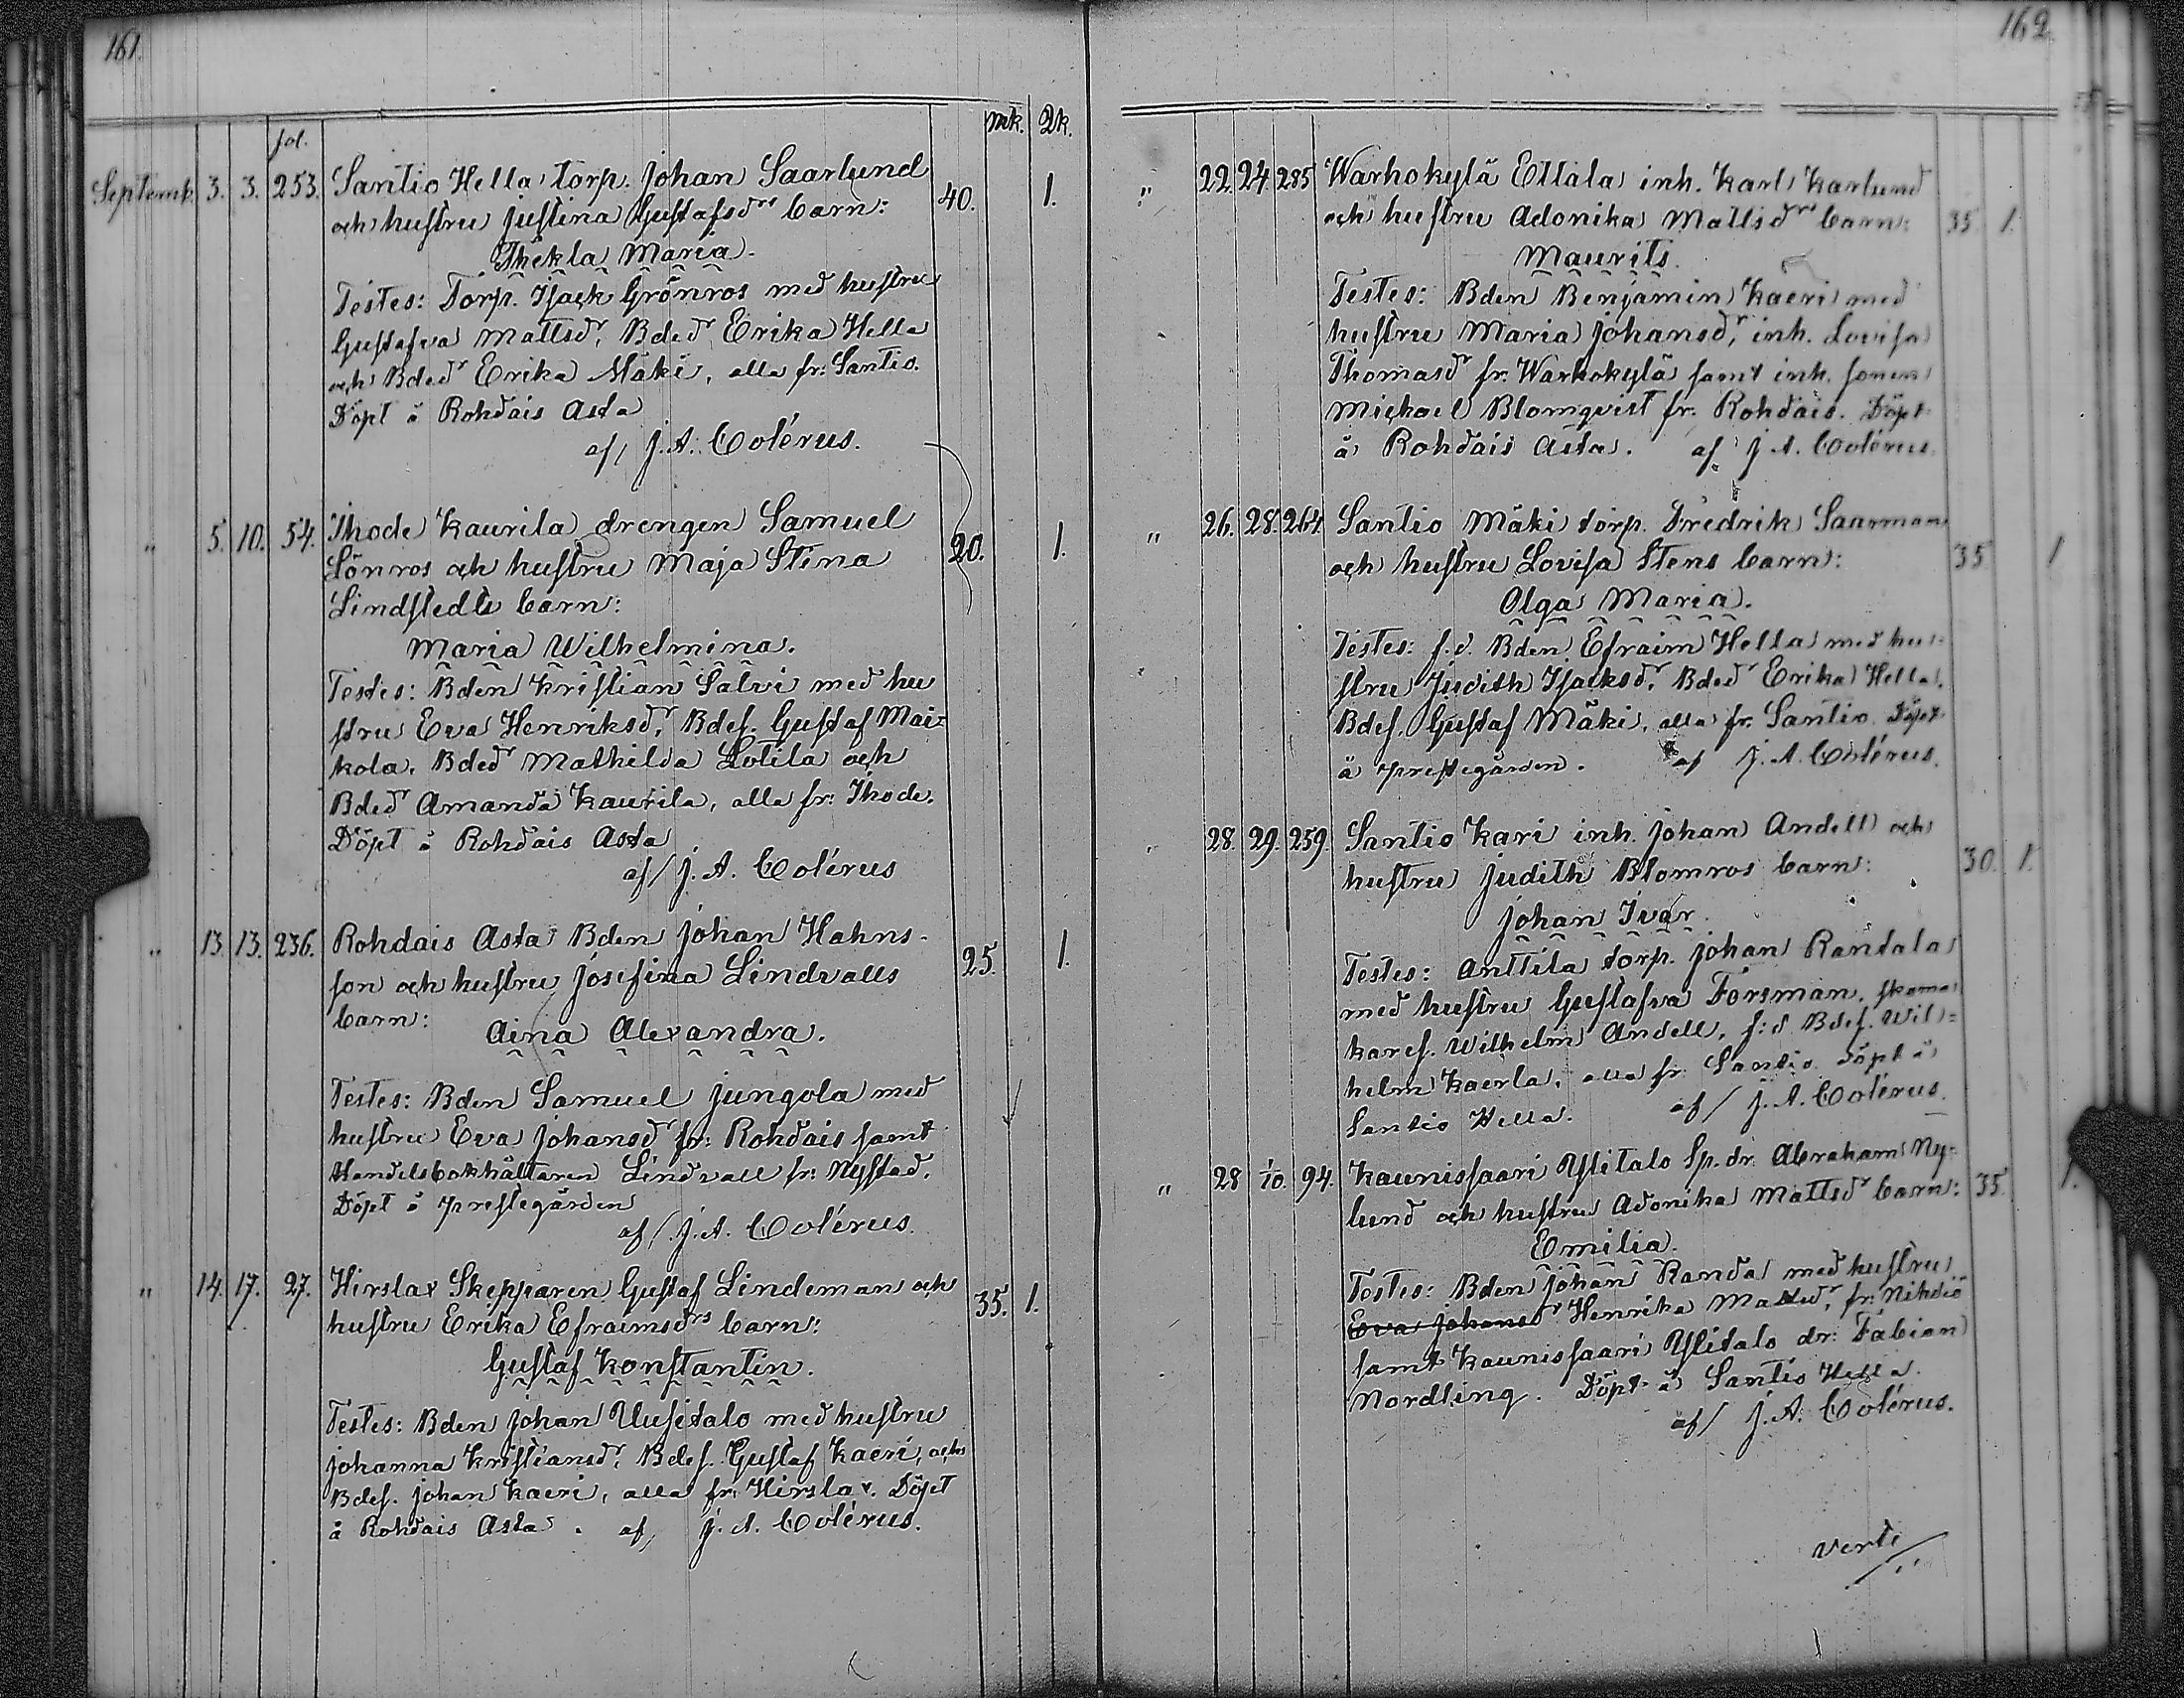 161.
fol. mk. Qk.
Septemb. 3. 3. 253. Santio Hella torp. Johan Saarlund 40. 1.
och hustru Justina Gustafsdrs barn:
Thekla Maria.
Testes: Torp. Isack Grönros med hustru
Gustafva Mattsdr, Bdedr Erika Hella
och Bdedr Erika Mäki, alla fr: Santio.
Döpt å Rohdais Asta
af/ J. A. Colérus.
" 5. 10. 54. Ihode Kaurila drengen Samuel 20. 1.
Lönros och hustru Maja Stina
Lindstedts barn:
Maria Wilhelmina.
Testes: Bden Kristian Salvi med hu
stru Eva Henriksdr, Bdes. Gustaf Mai=
kola, Bdedr Mathilda Lotila och
Bdedr Amanda Kaurila, alla fr: Ihode.
Döpt å Rohdais Asta
af/ J. A. Colérus
" 13. 13. 236. Rohdais Asta Bden Johan Hahns- 25. 1.
son och hustru Josefina Lindvalls
barn:
Aina Alexandra.
Testes: Bden Samuel Jungola med
hustru Eva Johansdr fr: Rohdais samt
Handelsbokhållaren Lindvall fr: Nystad.
Döpt å prestegården
af/ J. A. Colérus.
" 14. 17. 27. Hirslax Skepparen Gustaf Lindeman och 35. 1.
hustru Erika Efraimsdrs barn:
Gustaf Konstantin.
Testes: Bden Johan Uusitalo med hustru
Johanna Kristiansdr, Bdes. Gustaf Kaeri, och
Bdes. Johan Kaeri, alla fr: Hirslax. Döpt
å Rohdais Asta. af/ J. A. Colérus.
162.
" 22. 24. 285 Warhokylä Ettala inh. Karl Karlund
och hustru Adonika Mattsdrs barn: 35 1.
Maurits.
Testes: Bden Benjamin Kaeri med
hustru Maria Johansdr, inh. Lovisa
Thomasdr fr. Warhokylä samt inh. sonen
Michael Blomqvist fr. Rohdais. Döpt
å Rohdais Asta. af J. A. Colérus.
" 26. 28. 264 Santio Mäki torp. Fredrik Saarman
och hustru Lovisa Stens barn: 35 1
Olga Maria.
Testes: f.d. Bden Efraim Hella med hu=
stru Judith Isacksdr, Bdedr Erika Hella,
Bdes. Gustaf Mäki, alla fr. Santio. Döpt
å prestegården. af J. A. Colérus.
" 28. 29. 259 Santio Kari inh. Johan Andell och
hustru Judith Blomros barn: 30. 1.
Johan Ivar.
Testes: Anttila torp. Johan Rantala
med hustru Gustafva Forsman, skoma
kares. Wilhelm Andell, f:d Bdes. Wil=
helm Kaerla, alla fr. Santio. Döpt å
Santio Hella. af/ J. A. Colérus.
" 28 1/10. 94. Kaunissaari Ylitalo Sp. dr. Abraham Ny-
lund och hustru Adonika Mattsdr barn: 35. 1.
Emilia.
Testes: Bden Johan Randa med hustru
Eva Johansdr Henrika Mattsdr, fr: Nihdiö
samt Kaunissaari Ylitalo dr: Fabian
Nordling. Döpt å Santio Hella.
af/ J. A. Colérus.
verte